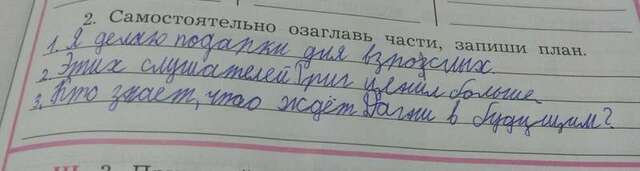 2. Самостоятельно озаглавь части, запиши план.
1. Я делаю подарки для взрослых.
2. Этих слушателей Григ ценил больше.
3. Кто знает, что ждёт Дагни в будущим?